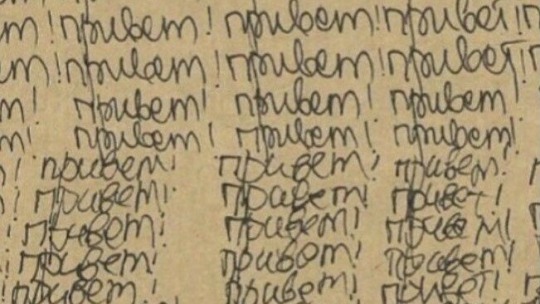 т! привет! привет! привет! п
т! привет! привет! привет!
т! привет! привет! привет
т! привет! привет! привет!
! привет! привет! привет!
! привет! привет! привет!
! привет! привет! привет!
! привет! привет! привет!
! привет! привет! привет!